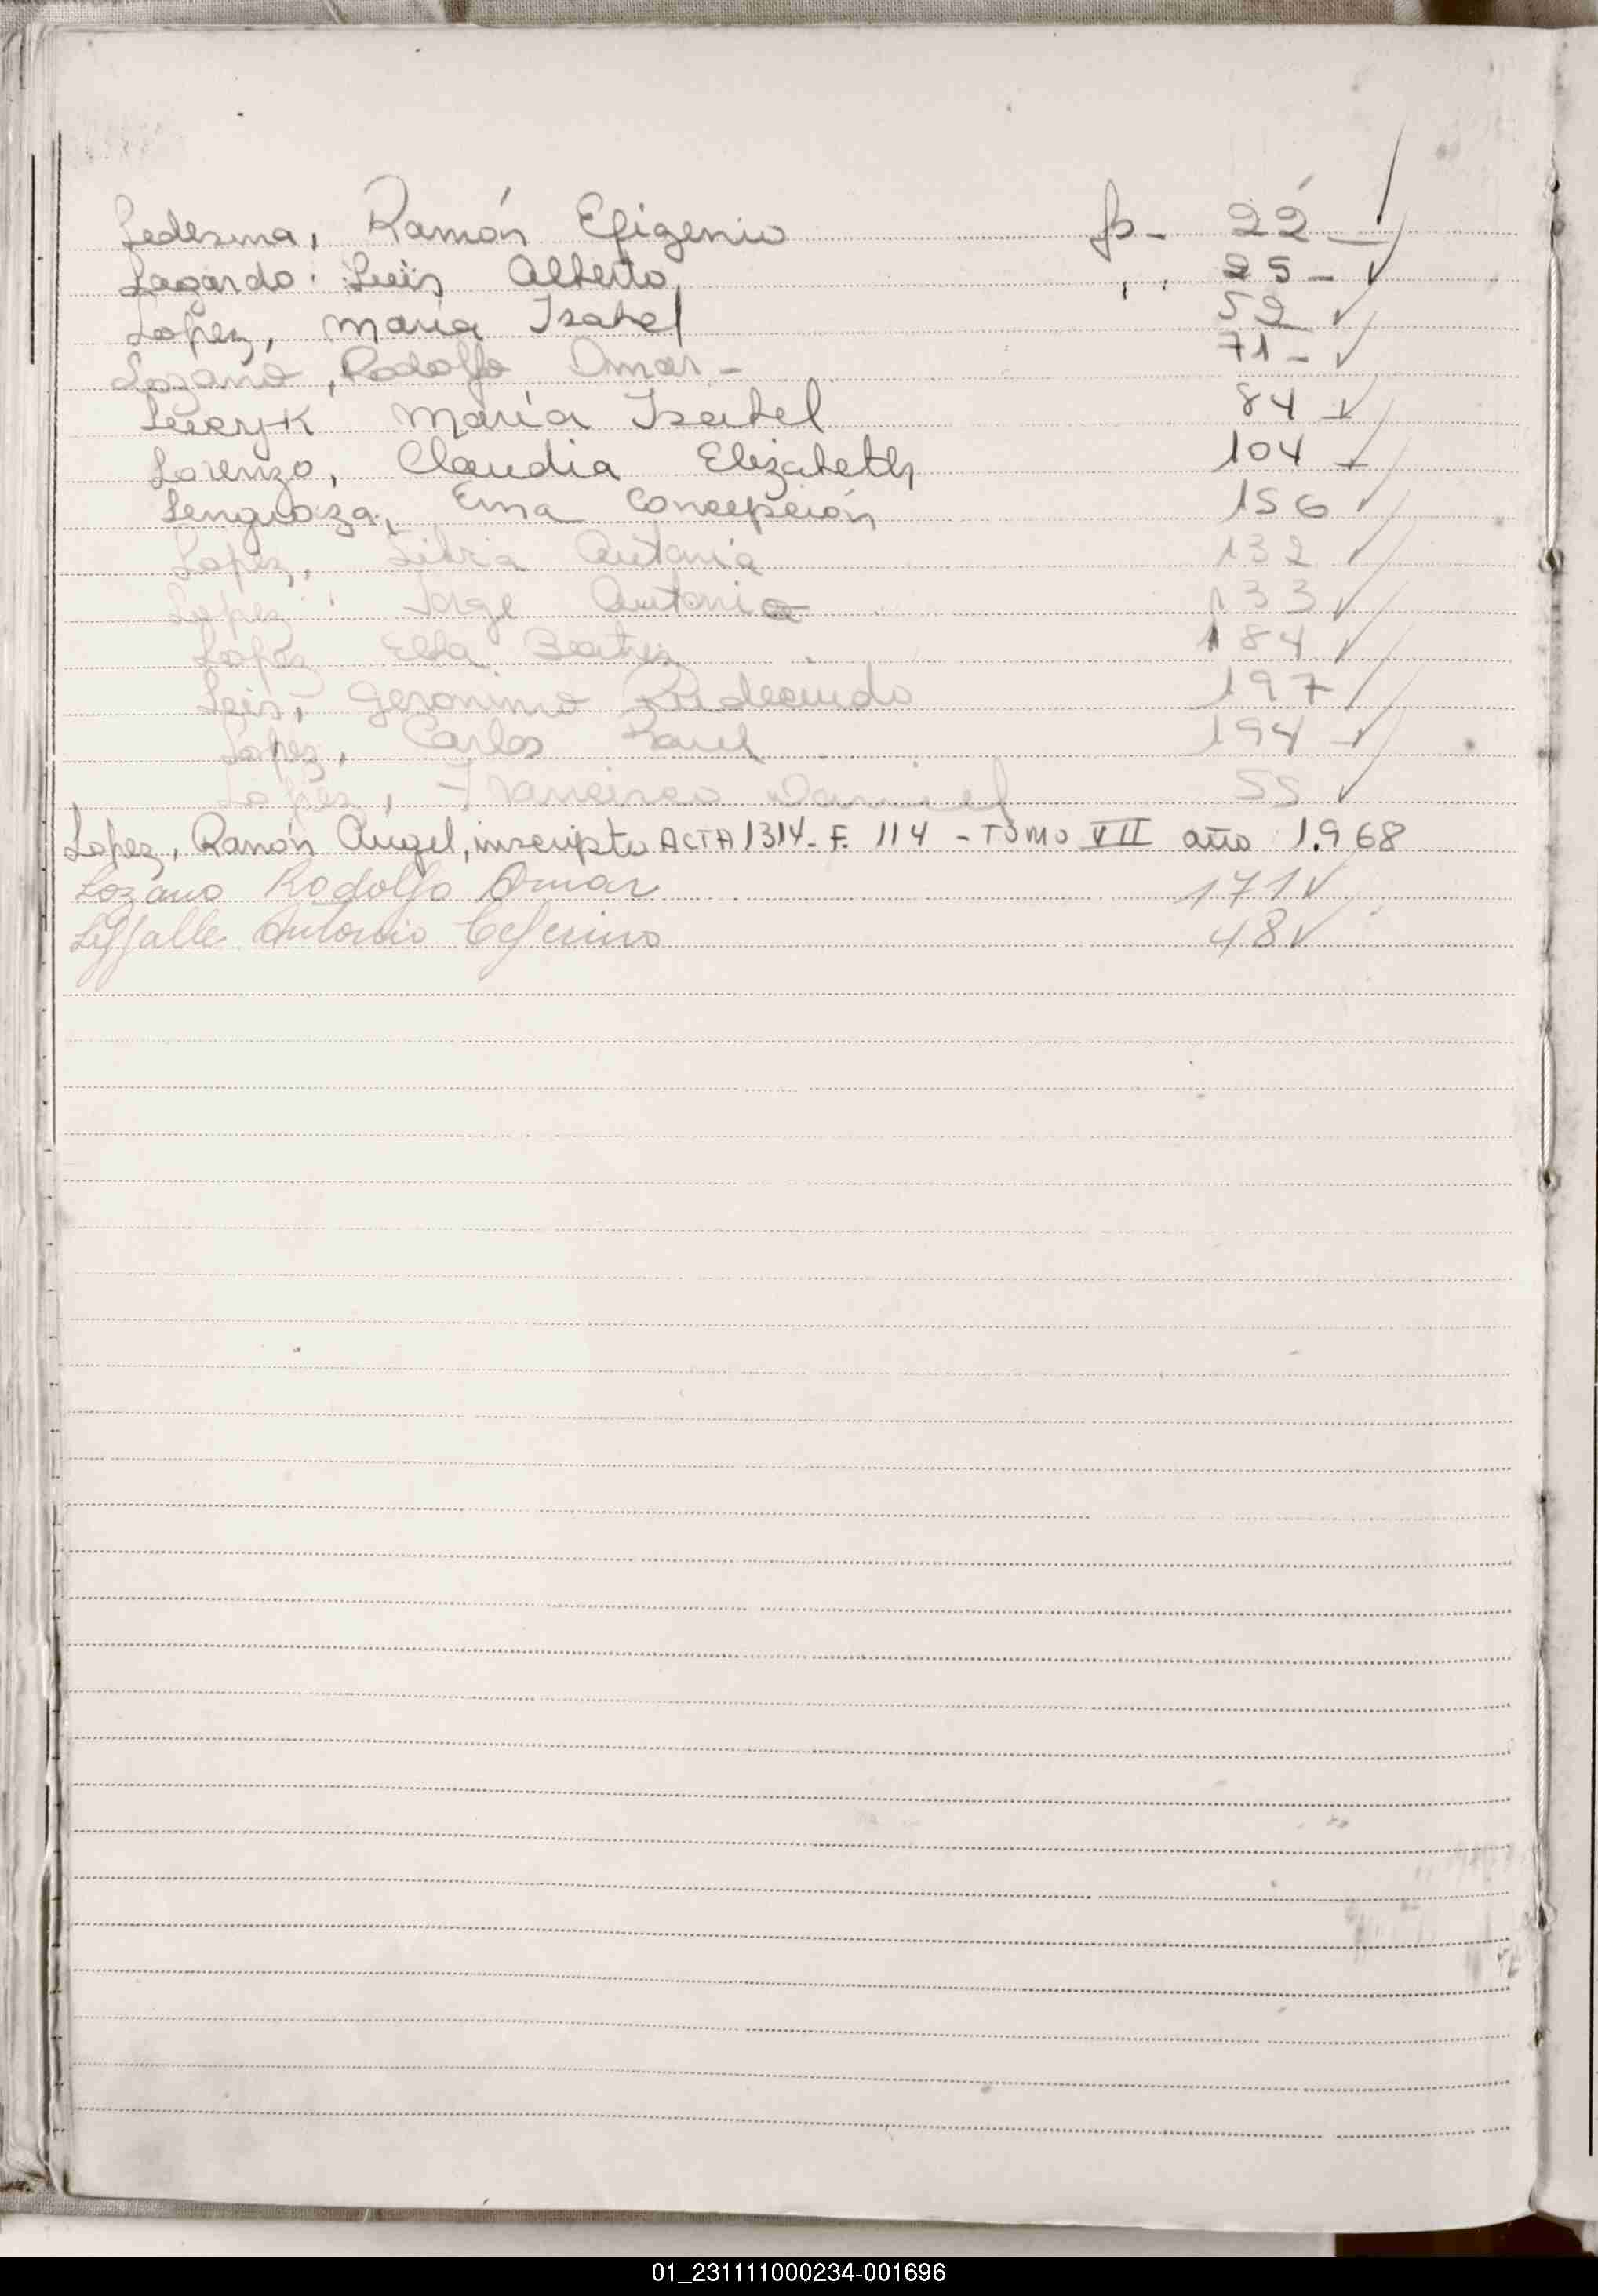 Ledesma, Ramón Efigenio fs- 22 -
Lagardo. Luis Alberto " 25 -
Lopez, María Isabel 52
Lozano, Rodolfo Omar - 71 -
María Isabel 84 -
Lorenzo, Claudia Elizabeth 104 -
Lenguaza, Ema Concepción 156
Lopez, Silvia Antonia 132
Lopez Jorge Antonio 133
Lopez Elba Beatriz 184
Leis, Geronimo 197
Lopez, Carlos Raul 194 -
Lopez, Francisco Daniel 55
Lopez, Ramón Angel, inscripto ACTA 1314 - F. 114 - TOMO VII año 1.968
Lozano Rodolfo Omar 171
Antonio Ceferino 48
01_231111000234-001696